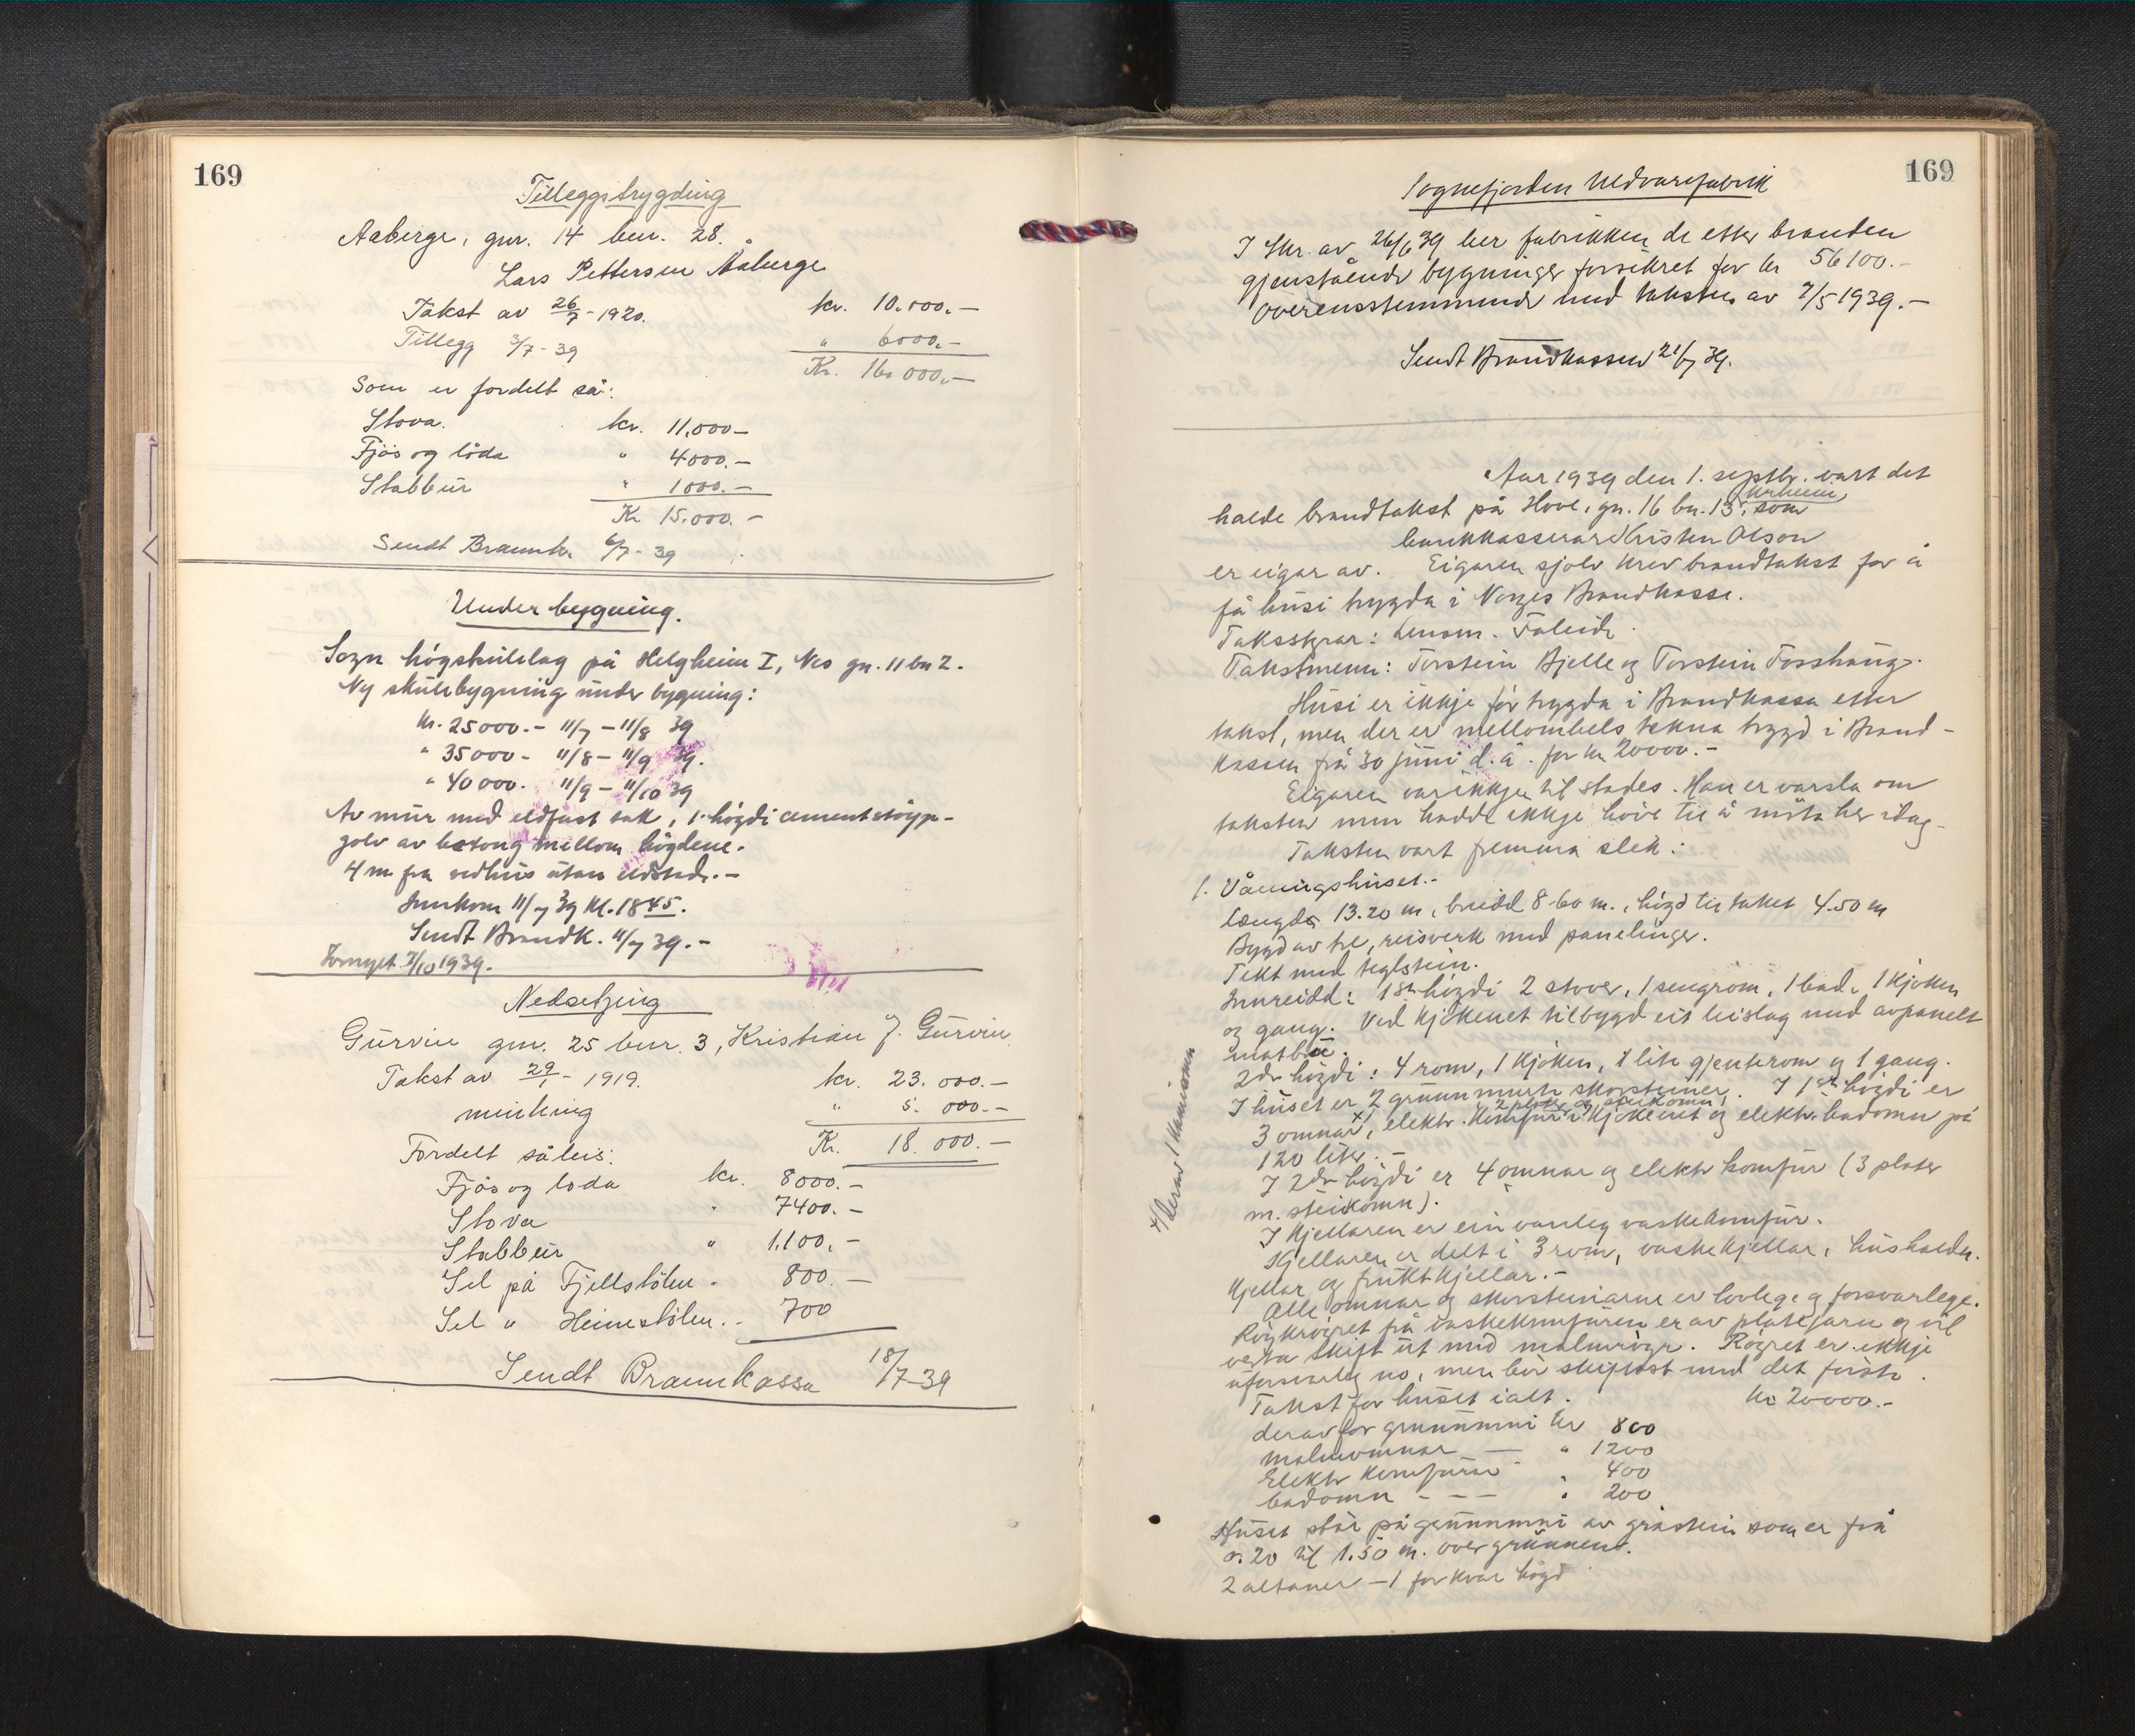 169
Tilleggstrygding
Aaberge, gnr. 14 bnr. 28.
Lars Pettersen Åaberge
Takst av 26/7-1920. kr. 10.000.-
Tillegg 3/7-39 " 6000.-
Kr. 16.000.-
Som er fordelt så:
Stova. kr. 11,000-
Fjøs og löda " 4000.-
Stabbur " 1000.-
Kr 15.000.-
Sendt Brannk. 6/7-39
Under bygning.
Sogn högskulelag på Helgheim I, Nes gn. 11 bn 2.
Ny skulebygning under bygning:
kr. 25000.- 11/7 - 11/8 39
" 35000- 11/8 - 11/9 39.
" 40000. 11/9 - 11/10 39
Av mur med eldfast tak, 1. högdi cementstöyp-
golv av betong mellom högdene.
4 m fra vedhus utan eldstad.-
Innkom 11/7 39 kl. 1845.
Sendt Brandk. 11/7 39.-
Fornyet 7/10 1939.
Nedsetjing
Gurvin gnr. 25 bnr. 3, Kristian J. Gurvin
Takst av 29/1- 1919. kr. 23.000.-
minking " 5.000.-
Kr. 18.000.-
Fordelt såleis:
Fjøs og löda kr. 8000.-
Stova " 7400.-
Stabbur " 1.100,-
Sel på Fjellstölen - 800.-
Sel " Heimestölen.- 700
Sendt Brannkassa 18/7-39
169
Sognefjorden Uldvarefabrik
I skr. av 26/6 39 her fabrikken de etter branden
gjenstående bygninger forsikret for kr 56100.-
overensstemmende med taksten av 7/5 1939.-
Sendt Brandkassen 21/7 39.
Aar 1939 den 1. septbr. vart det
halde brandtakst på Hove, gn. 16 bn. 13, som
bankkasserar Kristen Olson
er eigar av. Eigaren sjølv krev brandtakst for å
få husi trygda i Norges Brandkasse.
Taksstyrar: Lensm. Faleide.
Takstmenn: Torstein Bjelle og Torstein Fosshaug.
Husi er ikkje för trygda i Brandkassa etter
takst, men der er mellombels tekna trygd i Brand-
kassen frå 30 juni d.å. for kr 20000.-
Eigaren var ikkje til stades. Han er varsla om
taksten men hadde ikkje höve til å möta her idag.
Taksten vart fremma slik:
1. Våningshuset.-
Længde 13.20 m, breidd 8.60 m., högd til taket 4.50 m
Bygd av tre, reisverk med panelinger.
Tekt med teglstein.
Innreidd: 1ste högdi 2 stover, 1 sengrom, 1 bad, 1 kjöken
og gang. Ved kjökenet tilbygd eit bislag med avpanelt
matbu.
2dre högdi: 4 rom, 1 kjöken, 1 lite gjenterom og 1 gang.
I huset er 2 grunnmurte skorsteiner. I 1ste högdi er
2 plater og steikomn
3 omnar x), elektr. komfur i kjökenet og elektr. badomn på
120 liter.-
x) Derav 1 kaminomn
I 2dre högdi er 4 omnar og elektr komfur (3 plater
m. steikomn).
I kjellaren er ein vanleg vaskekomfur.
Kjellaren er delt i 3 rom, vaskekjellar, hushalds-
kjellar og fruktkjellar.-
Alle omnar og skorsteinarne er lovlege og forsvarlege.
Röykröyret på vaskekomfuren er av platejarn og vil
verta skift ut med malmröyr. Röyret er ikkje
uforsvarleg no, men bör skiftast med det fyrste.
Takst for huset ialt. kr 20000.-
derav for grunnmuri kr 800
malmomnar — " 1200
Elektr komfurar " 400
badomn - - - " 200
Huset står på grunnmuri av gråstein som er frå
0.20 til 1.50 m. over grunnen.
2 altaner - 1 for kvar högd